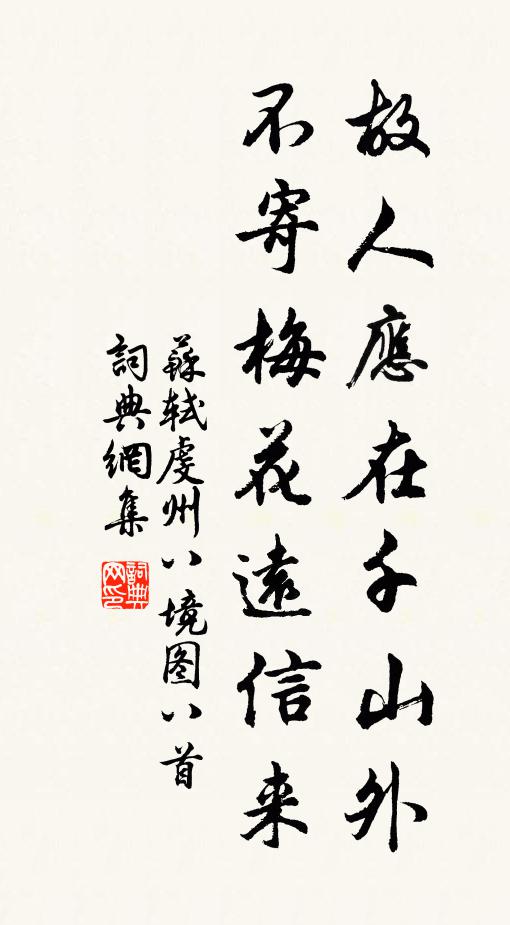 故人應在千山外
不寄梅花遠信来
蘇軾虔州八境图八首
詞典網集
詞典网印